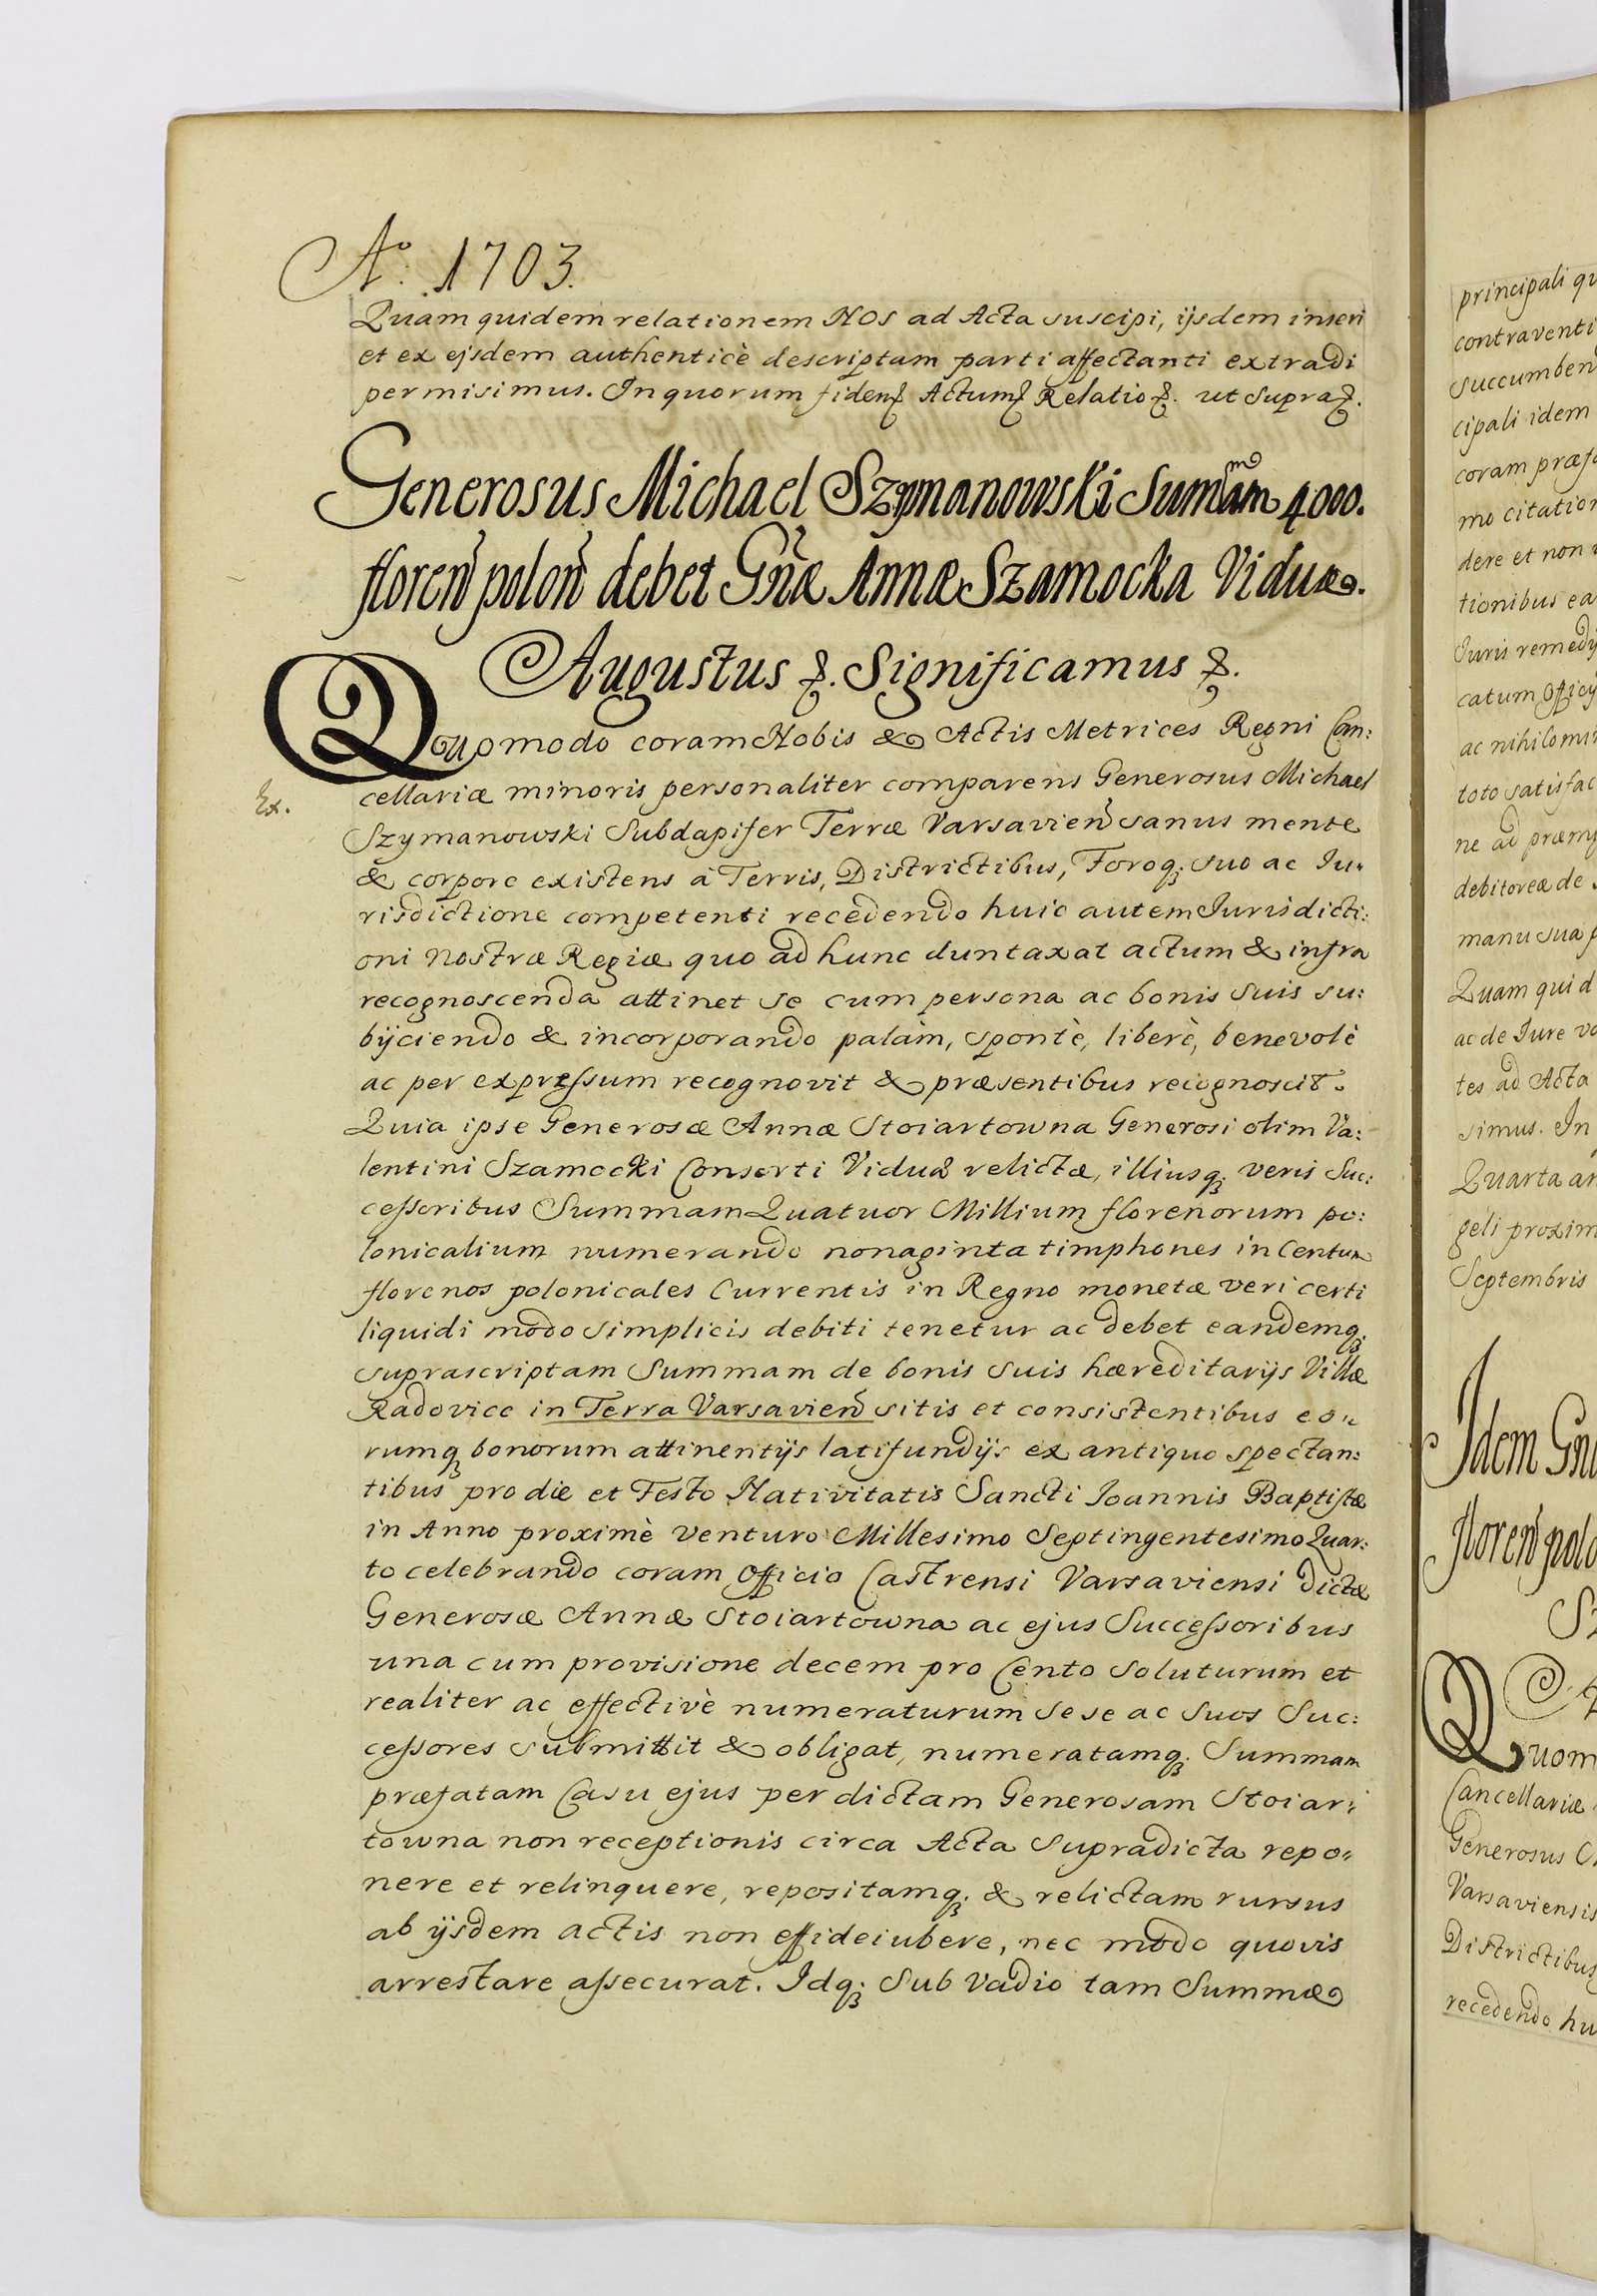 Aº. 1703.
Quam quidem relationem NOS ad Acta suscipi, ijsdem inseri
et ex ejsdem authenticè descriptam parti affectanti extradi
permisimus. In quorum fidem Actum Relatio &. ut supra &.
Generosus Michael Szymanowski Sum̃am 4000.
floreñ poloñ debet Gñæ Annæ Szamocka Viduæ.
Augustus &. Significamus &.
Quomodo coram Nobis & Actis Metrices Regni Can:
Ex.
cellariæ minoris personaliter comparens Generosus Michael
Szymanowski Subdapifer Terræ Varsavieñ sanus mente
& corpore existens à Terris, Districtibus, Foroq; suo ac Ju-
risdictione competenti recedendo huic autem Jurisdicti:
oni Nostræ Regiæ quo ad hunc duntaxat actum & infra
recognoscenda attinet se cum persona ac bonis suis su:
bijciendo & incorporando palàm, spontè, liberè, benevolè
ac per expressum recognovit & præsentibus recognoscit.
Quia ipse Generosæ Annæ Stoiartowna Generosi olim Va:
lentini Szamocki Consorti Viduæ relictæ, illiusq; veris Suc:
cessoribus Summam Quatuor Millium florenorum po:
lonicalium numerando nonaginta timphones in Centum
florenos polonicales Currentis in Regno monetæ veri certi
liquidi modo simplicis debiti tenetur ac debet eandemq;
suprascriptam Summam de bonis suis hæreditarijs Villæ
Radovice in Terra Varsavieñ sitis et consistentibus eo-
rumq; bonorum attinentijs latifundijs ex antiquo spectan:
tibus pro die et Festo Nativitatis Sancti Joannis Baptistæ
in Anno proximè venturo Millesimo Septingentesimo Quar:
to celebrando coram Officio Castrensi Varsaviensi dictæ
Generosæ Annæ Stoiartowna ac ejus Successoribus
una cum provisione decem pro Cento soluturum et
realiter ac effectivè numeraturum sese ac suos Suc:
cessores submittit & obligat, numeratamq; Summam
præfatam Casu ejus per dictam Generosam Stoiar:
towna non receptionis circa Acta supradicta repo-
nere et relinquere, repositamq; & relictam rursus
ab ijsdem actis non effideiubere, nec modo quovis
arrestare assecurat. Idq; sub vadio tam Summæ
principali qu
contraventi
succumben
cipali idem
coram præfa
mo citation
dere et non
tionibus ea
Juris remedij
catum Officij
ac nihilomin
toto satisfac
ne ad præm
debitoreæ de
manu sua p
Quam quid
ac de Jure vo
tes ad Acta
simus. In
Quarta an
geli proxim
Septembris
Idem Gn
floreñ polo
Quom
Cancellariæ
Generosus
Varsaviensis
Districtibus
recedendo hu